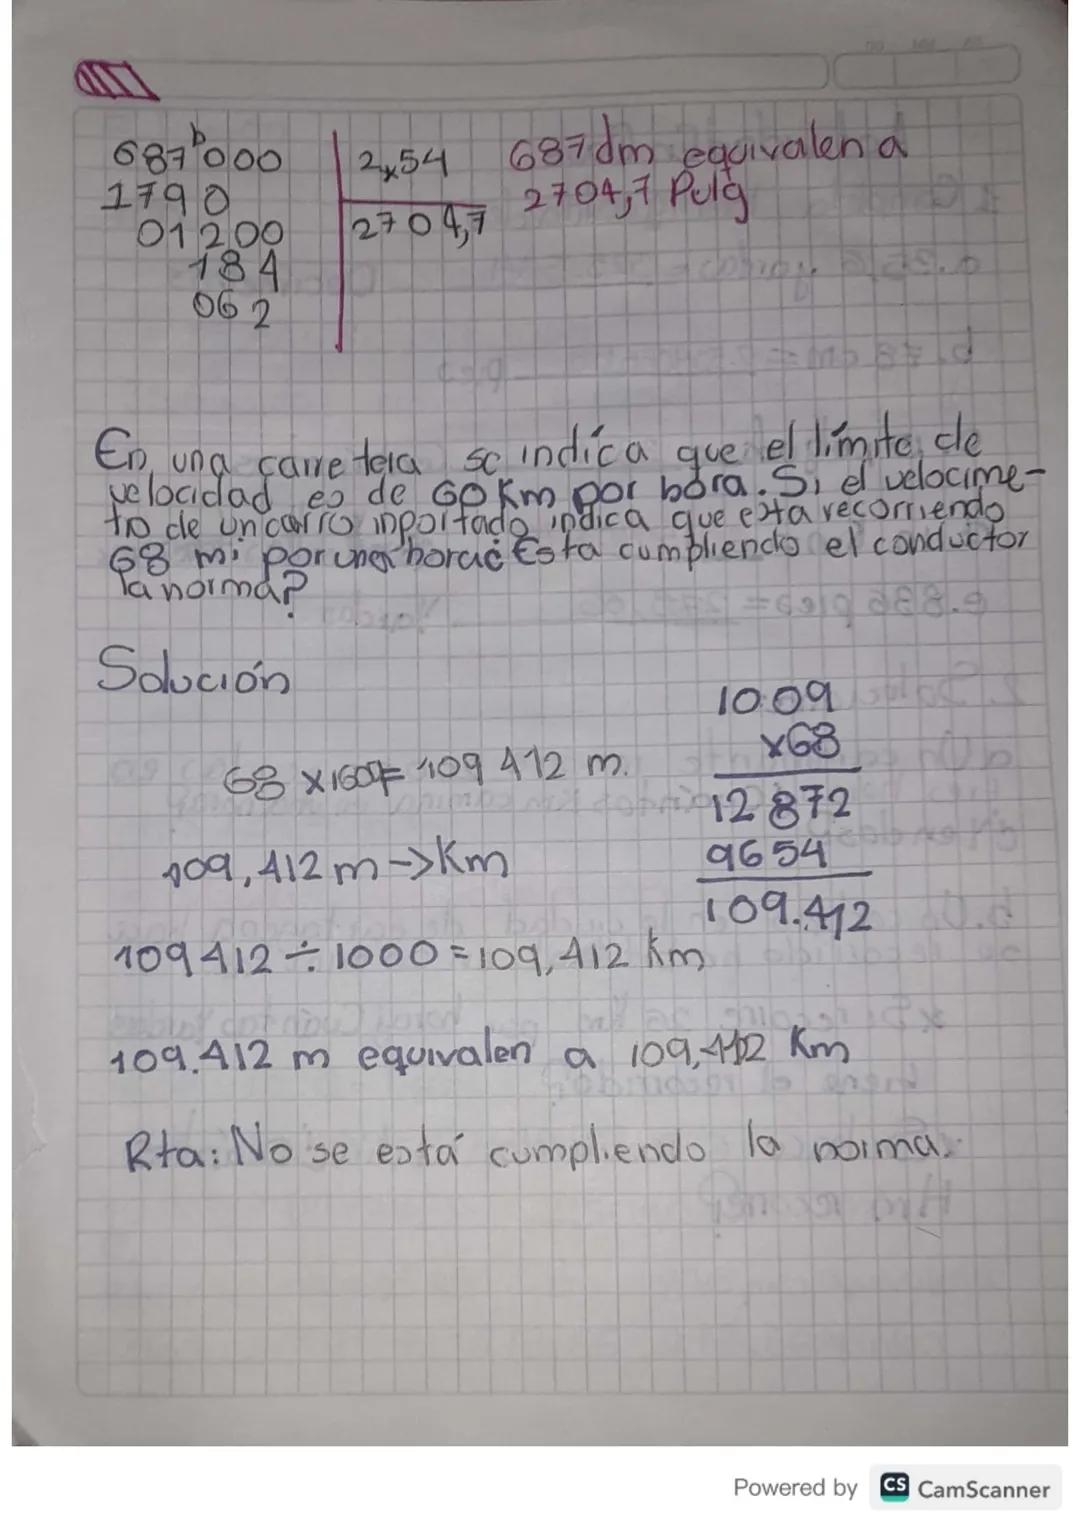 687000 2,54 687dm equivalen a
1790 2704,7 2704,7 Pulg
01200
184
062
En una carretera se indíca que el límite de
velocidad es de 60 Km por hora. Si el velocime-
tro de un carro inportado indica que esta recorriendo
68 mi por una hora ¿Esta cumpliendo el conductor
la norma?
Solución
1009
x68
68 x1609= 109 412 m.
12 872
9654
109.412
109,412 m->Km
109412 ÷ 1000 = 109,412 Km
109.412 m equivalen a 109,412 Km
Rta: No se está cumpliendo la norma.
Powered by CS CamScanner